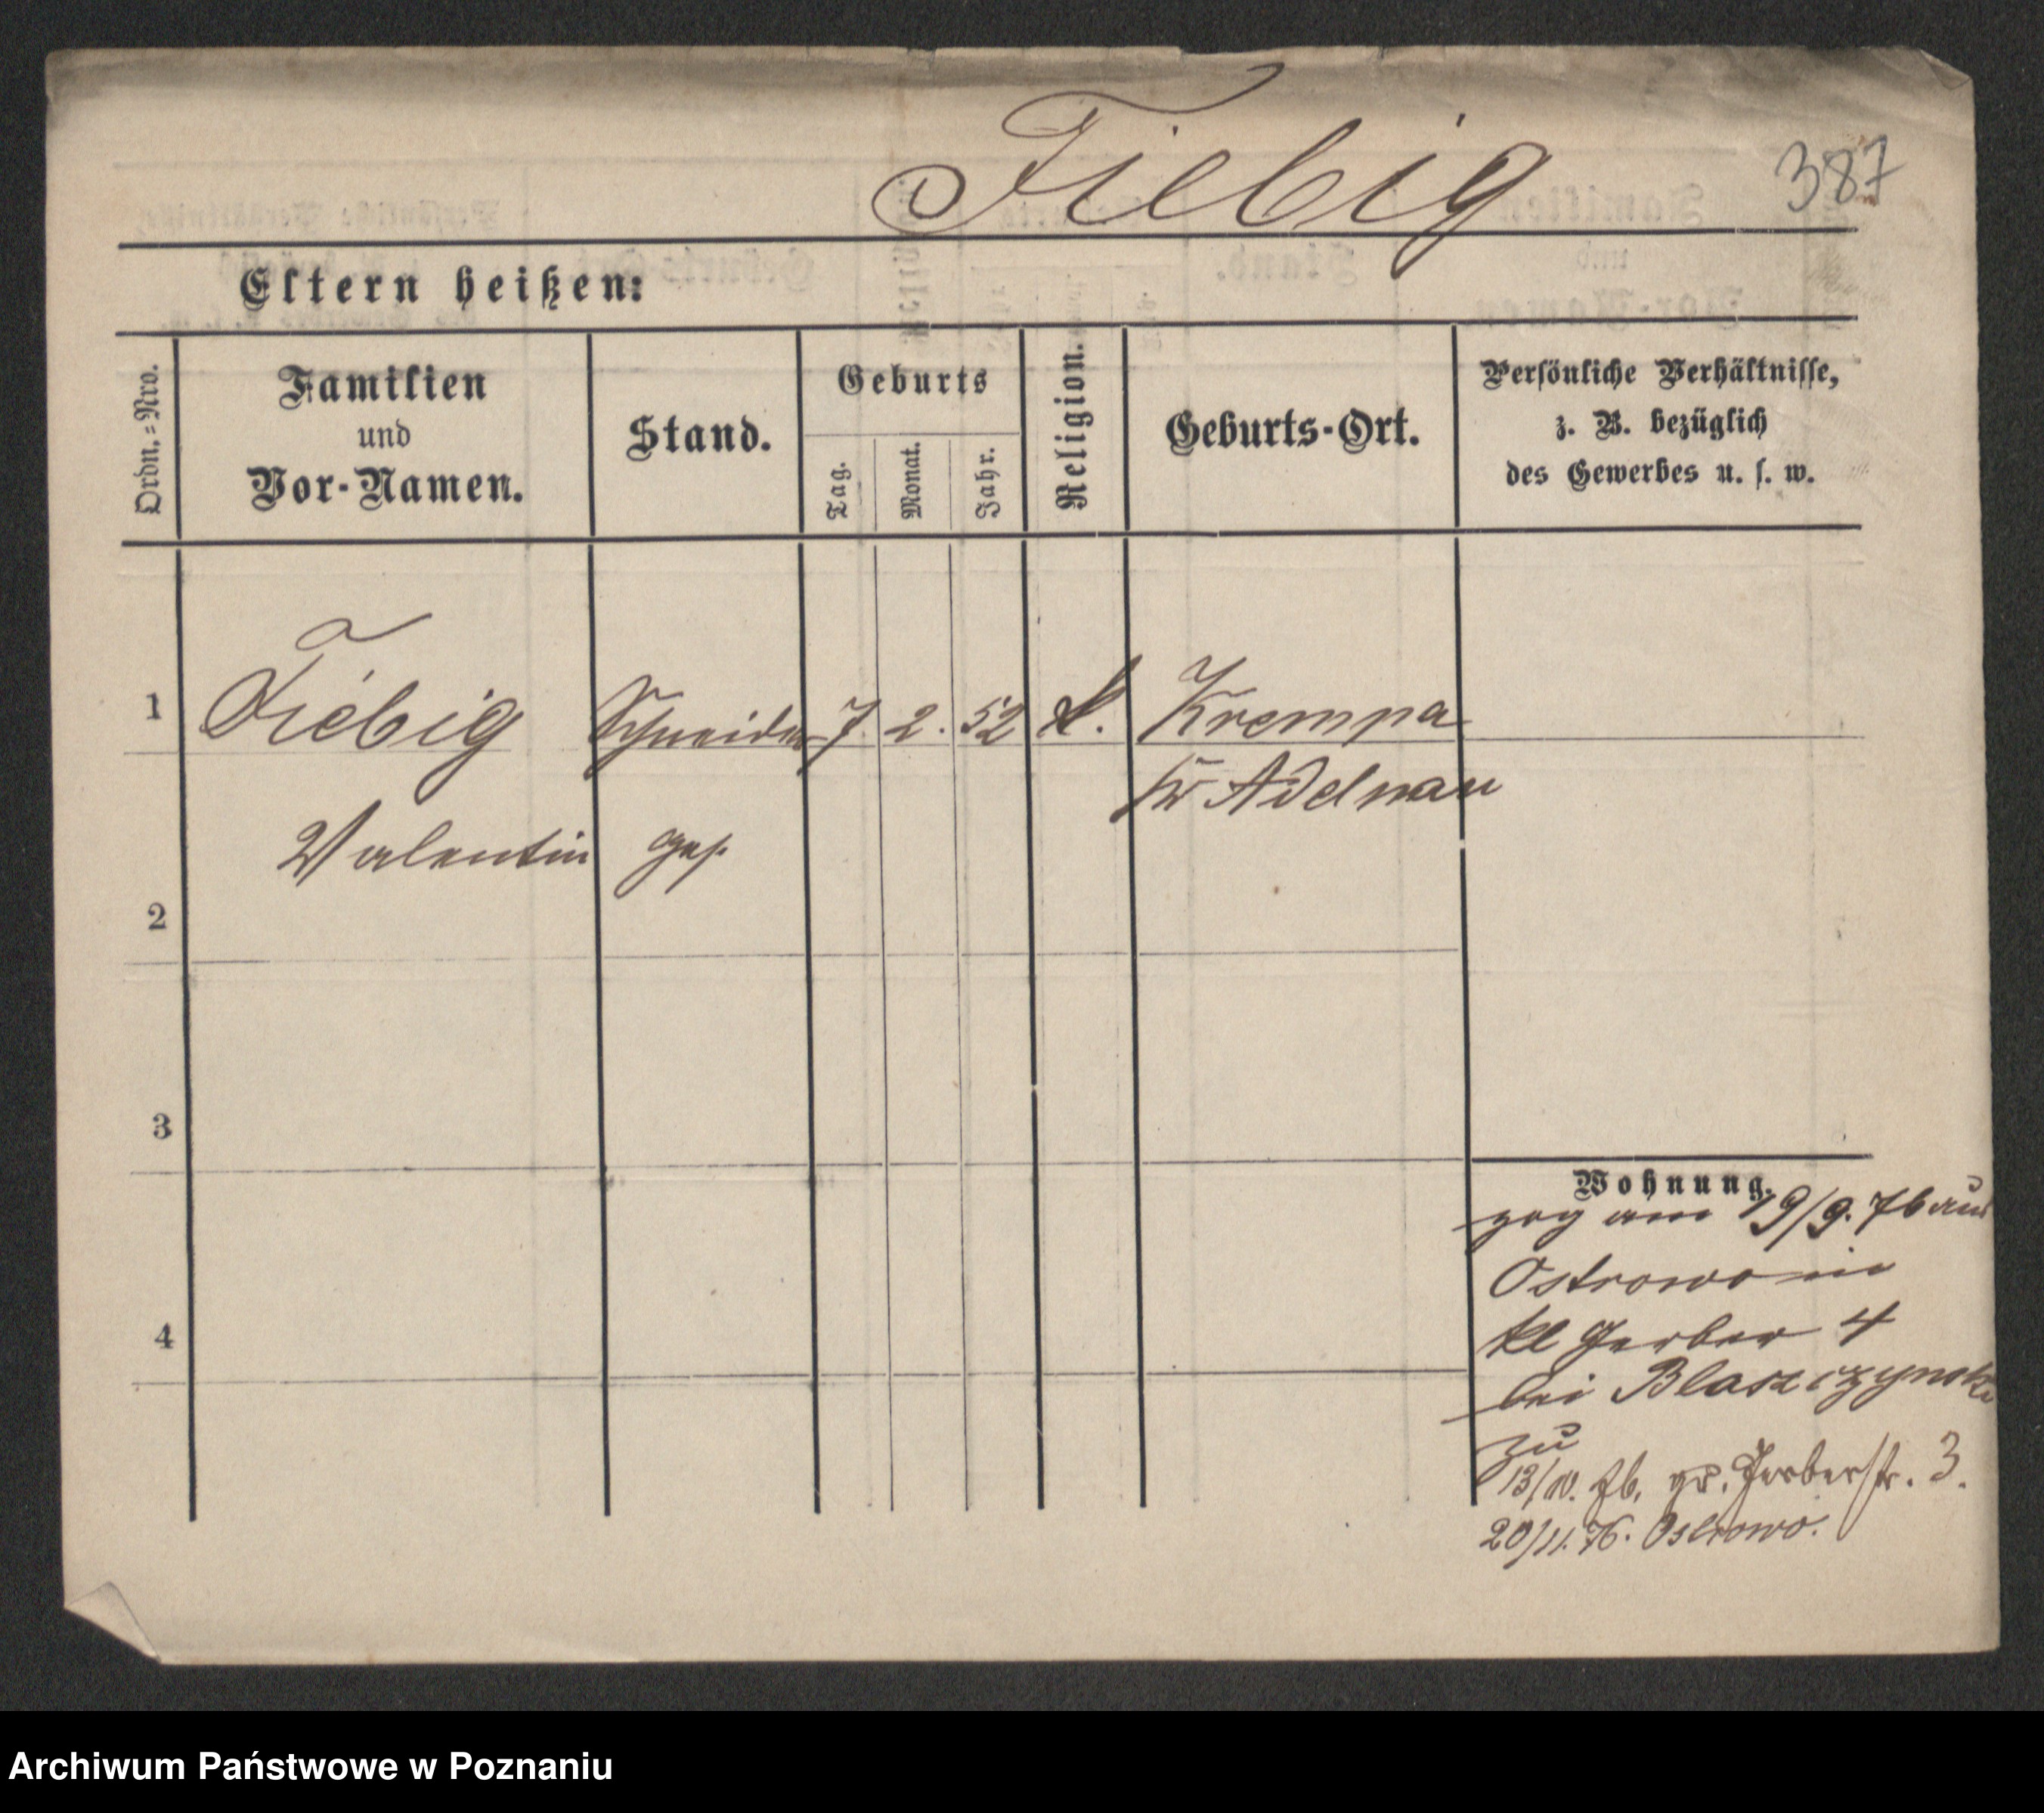 Fiebig
387
Eltern heißen:
Ordn.=Nro.
Familien
und
Vor-Namen.
Stand.
Geburts
Tag.
Monat.
Jahr.
Religion.
Geburts-Ort.
Persönliche Verhältnisse,
z. B. bezüglich
des Gewerbes u. s. w.
1
Fiebig
Schneider
7. 2. 52
k.
Krempa
Kr Adelnau
Valentin
ges.
2
3
4
Wohnung.
zog am 19/9. 76 aus
Ostrowo in
kl Gerber 4
bei Blaszczynski
zu
13/10. 76. gr. Gerberstr. 3.
20/11. 76. Ostrowo.
Archiwum Państwowe w Poznaniu